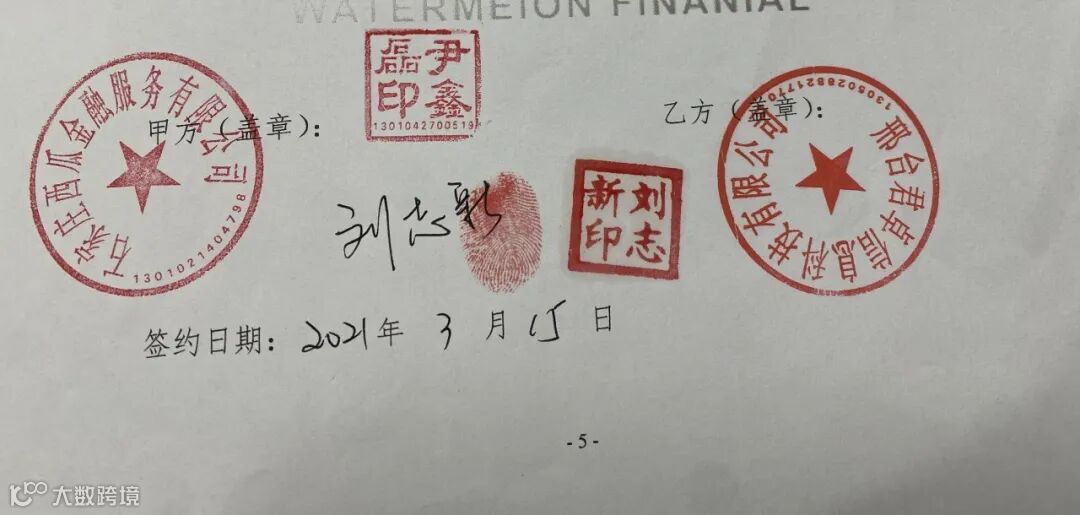 WATERMEION FINANIAL
石家庄西瓜金融服务有限公司
1301021404798
尹鑫磊印
1301042700519
甲方（盖章）：
乙方（盖章）：
邢台君卓信息科技有限公司
1305028821770
刘志新
刘志新印
签约日期：2021年 3 月 15 日
- 5 -
大数跨境